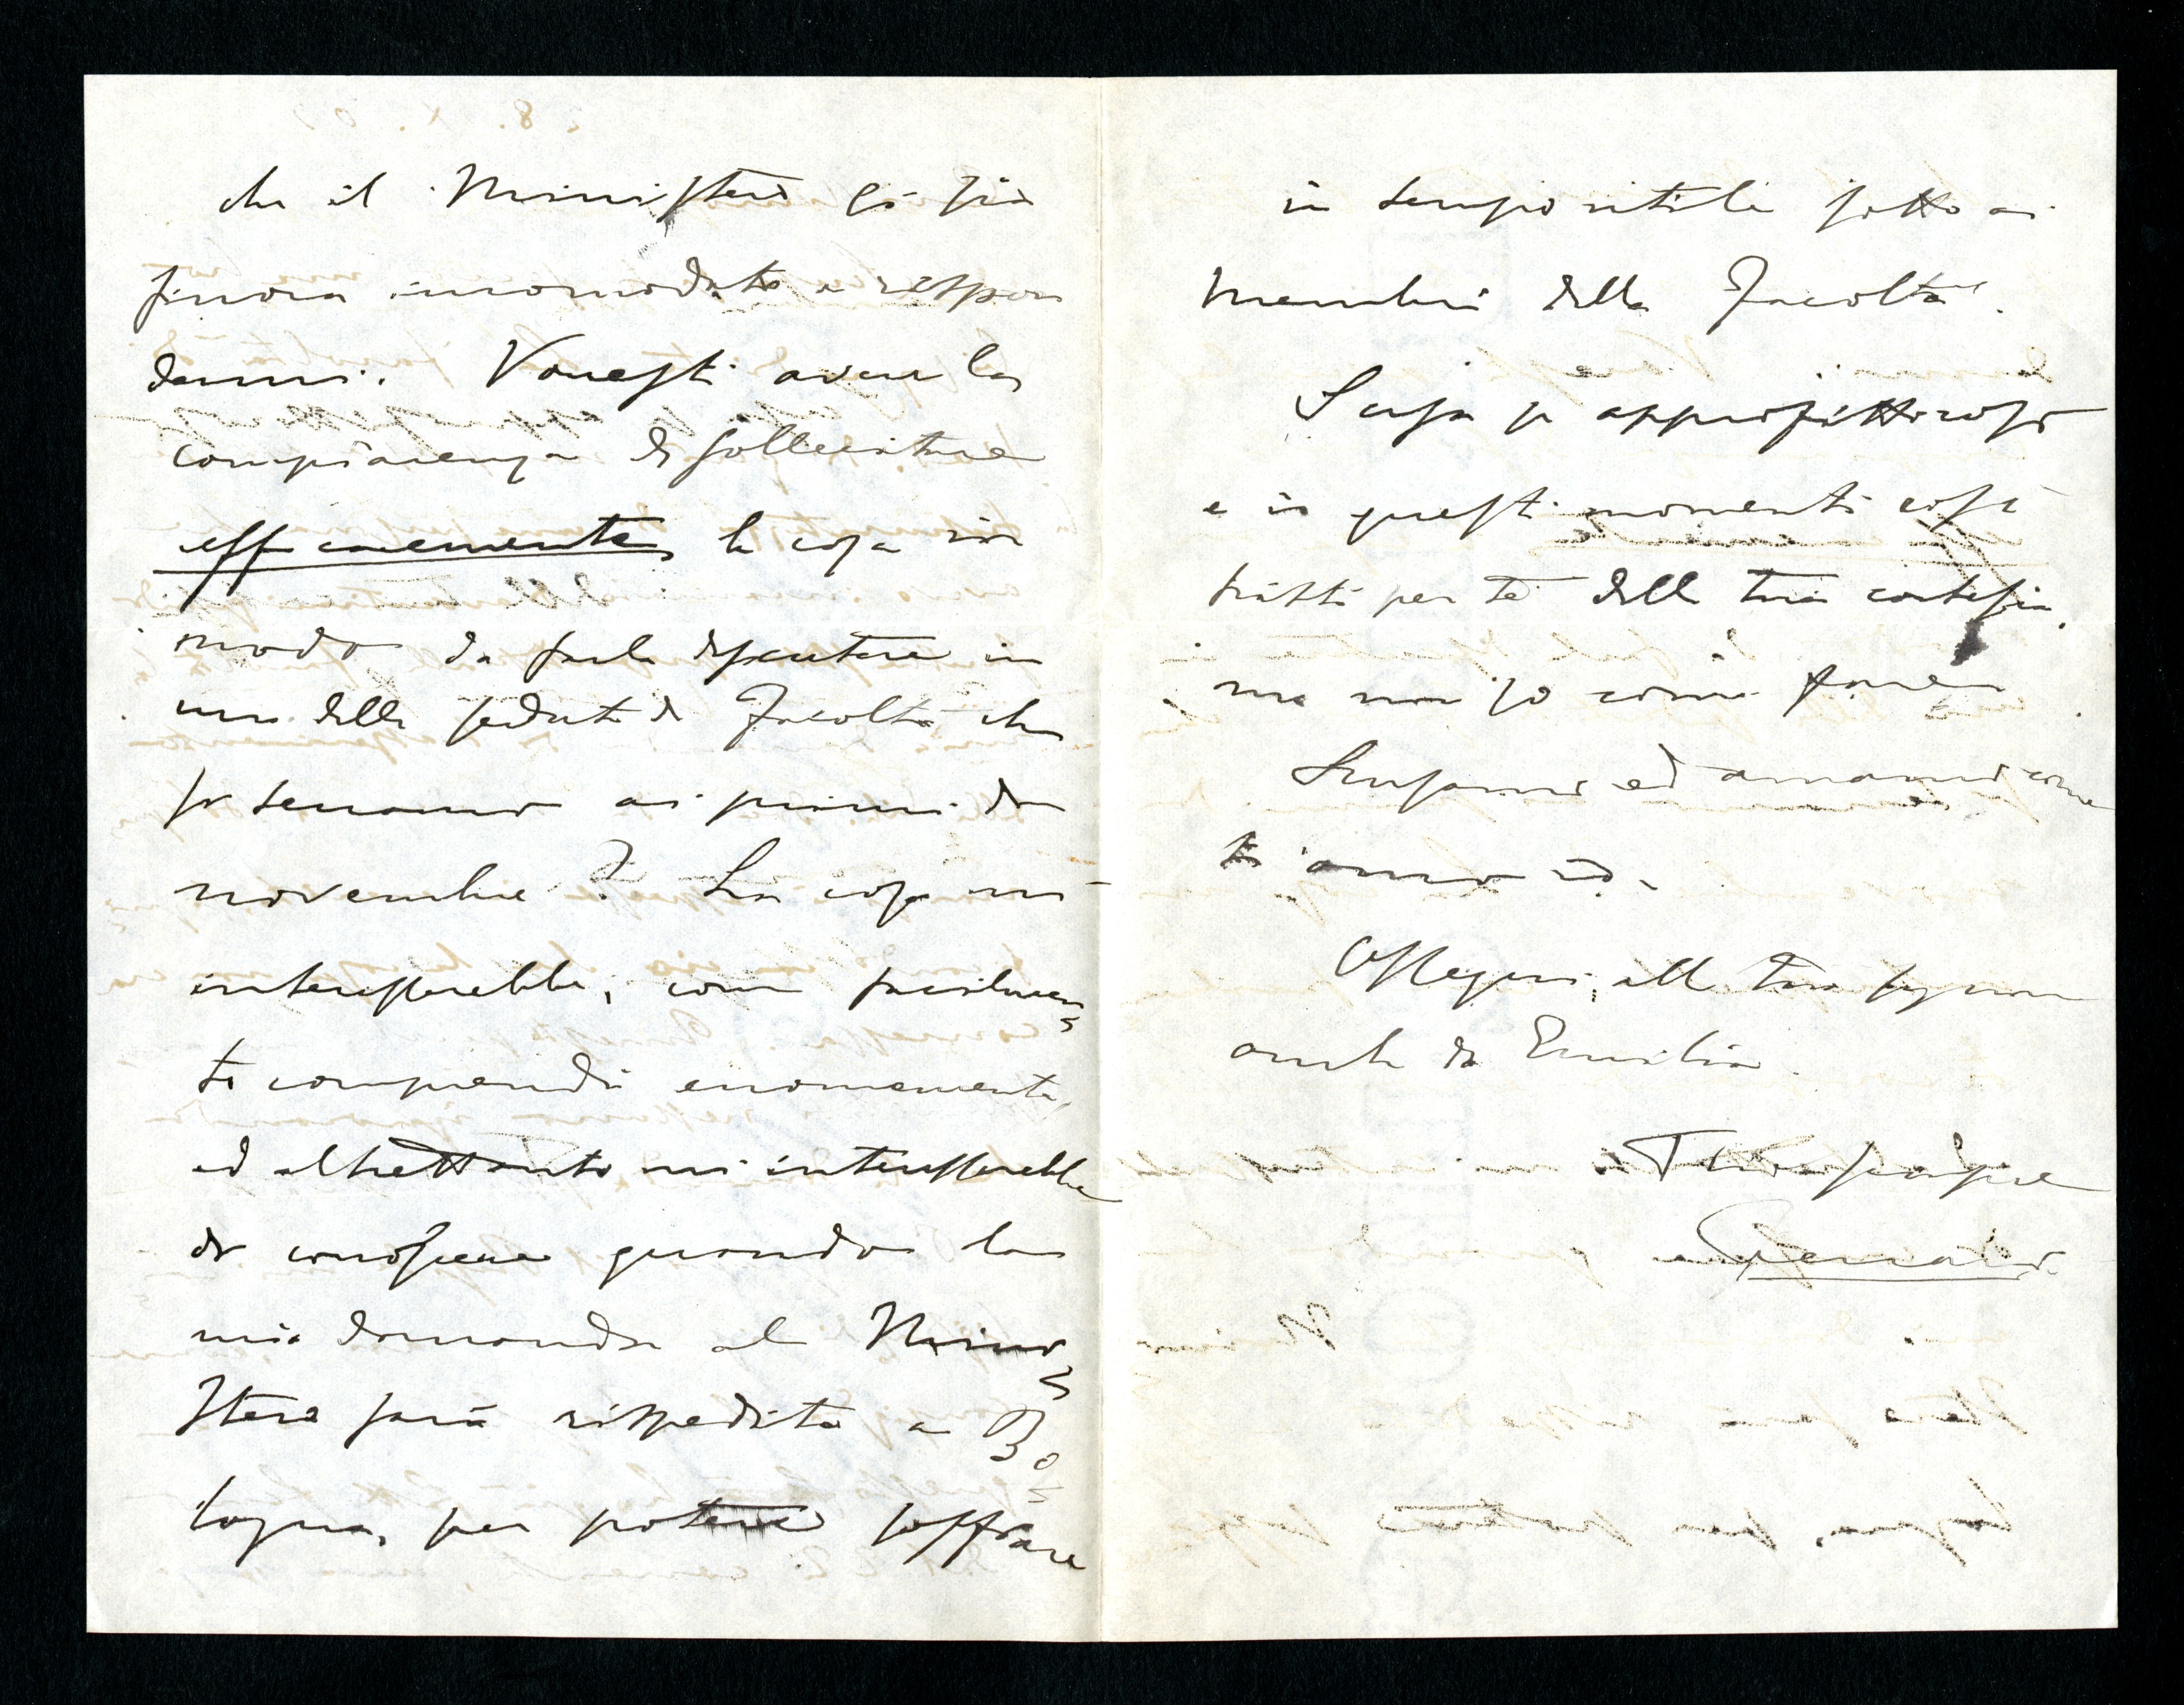 che il Ministero si sia
finora incomodato a rispon
dermi. Vorresti aver la
compiacenza di sollecitare
efficacemente la cosa in
modo da farla discutere in
una delle sedute di Facoltà che
si terranno ai primi di
novembre? La cosa mi
interesserebbe, come facilmen
te comprendi enormemente,
ed altrettanto mi interesserebbe
di conoscere quando la
mia domanda al Mini
stero sarà rispedita a Bo
logna, per potere soffiare
in tempo utile sotto ai
membri della Facoltà.
Scusa se approfitto così
e in questi momenti così
tristi per te della tua cortesia,
ma non so come fare
Scusami ed amami come
ti amo io.
Ossequi alla tua signora
anche da Emilia.
Tuo sempre